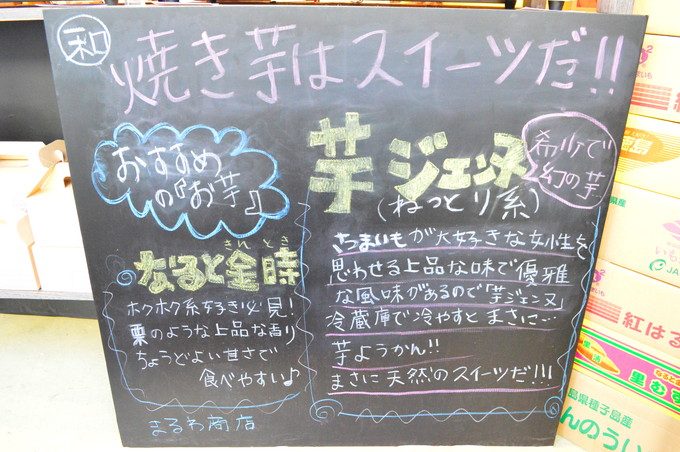 和
焼き芋はスイーツだ!!
おすすめ
の『お芋』
きんとき
なると金時
ホクホク系好き必見!
栗のような上品な香り
ちょうどよい甘さで
食べやすい♪
まるわ商店
芋ジェンヌ
(ねっとり系)
希少で
幻の芋
さつまいもが大好きな女性を
思わせる上品な味で優雅
な風味があるので「芋ジェンヌ」
冷蔵庫で冷やすとまさに…
芋ようかん!!
まさに天然のスイーツだ!!!
いも
JA
紅はる
なると
里む
島県種子島産
んのうい